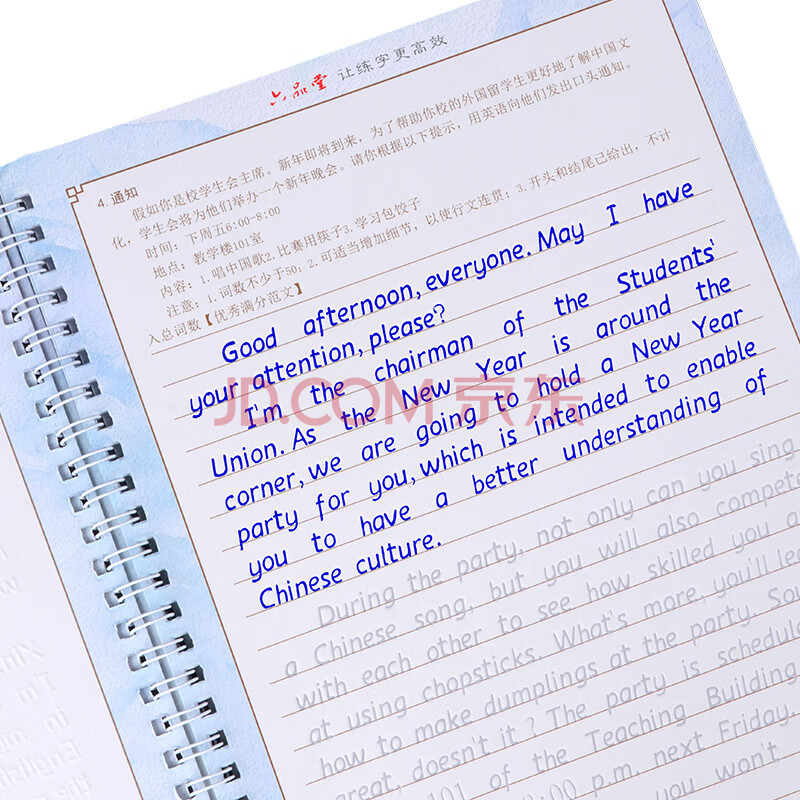 六品堂 让练字更高效
4. 通知
假如你是校学生会主席。新年即将到来，为了帮助你校的外国留学生更好地了解中国文
化，学生会将为他们举办一个新年晚会。请你根据以下提示，用英语向他们发出口头通知。
时间：下周五6:00-8:00
地点：教学楼101室
内容：1.唱中国歌2.比赛用筷子3.学习包饺子
注意：1.词数不少于50；2.可适当增加细节，以使行文连贯；3.开头和结尾已给出，不计
入总词数【优秀满分范文】
Good afternoon, everyone. May I have
your attention, please?
I'm the chairman of the Students'
Union. As the New Year is around the
corner, we are going to hold a New Year
party for you, which is intended to enable
you to have a better understanding of
Chinese culture.
During the party, not only can you sing
a Chinese song, but you will also compete
with each other to see how skilled you a
at using chopsticks. What's more, you'll lea
how to make dumplings at the party. Sou
great, doesn't it? The party is schedule
101 of the Teaching Building
:00 p.m. next Friday.
you won't
JD.COM 京东